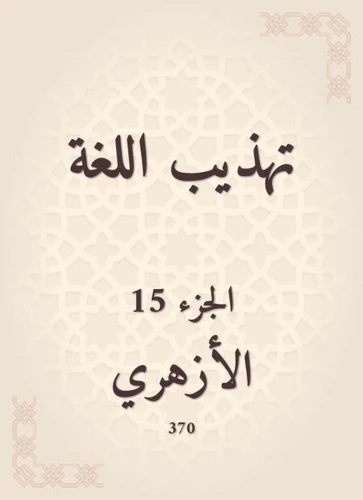 تهذيب اللغة
الجزء 15
الأزهري
370